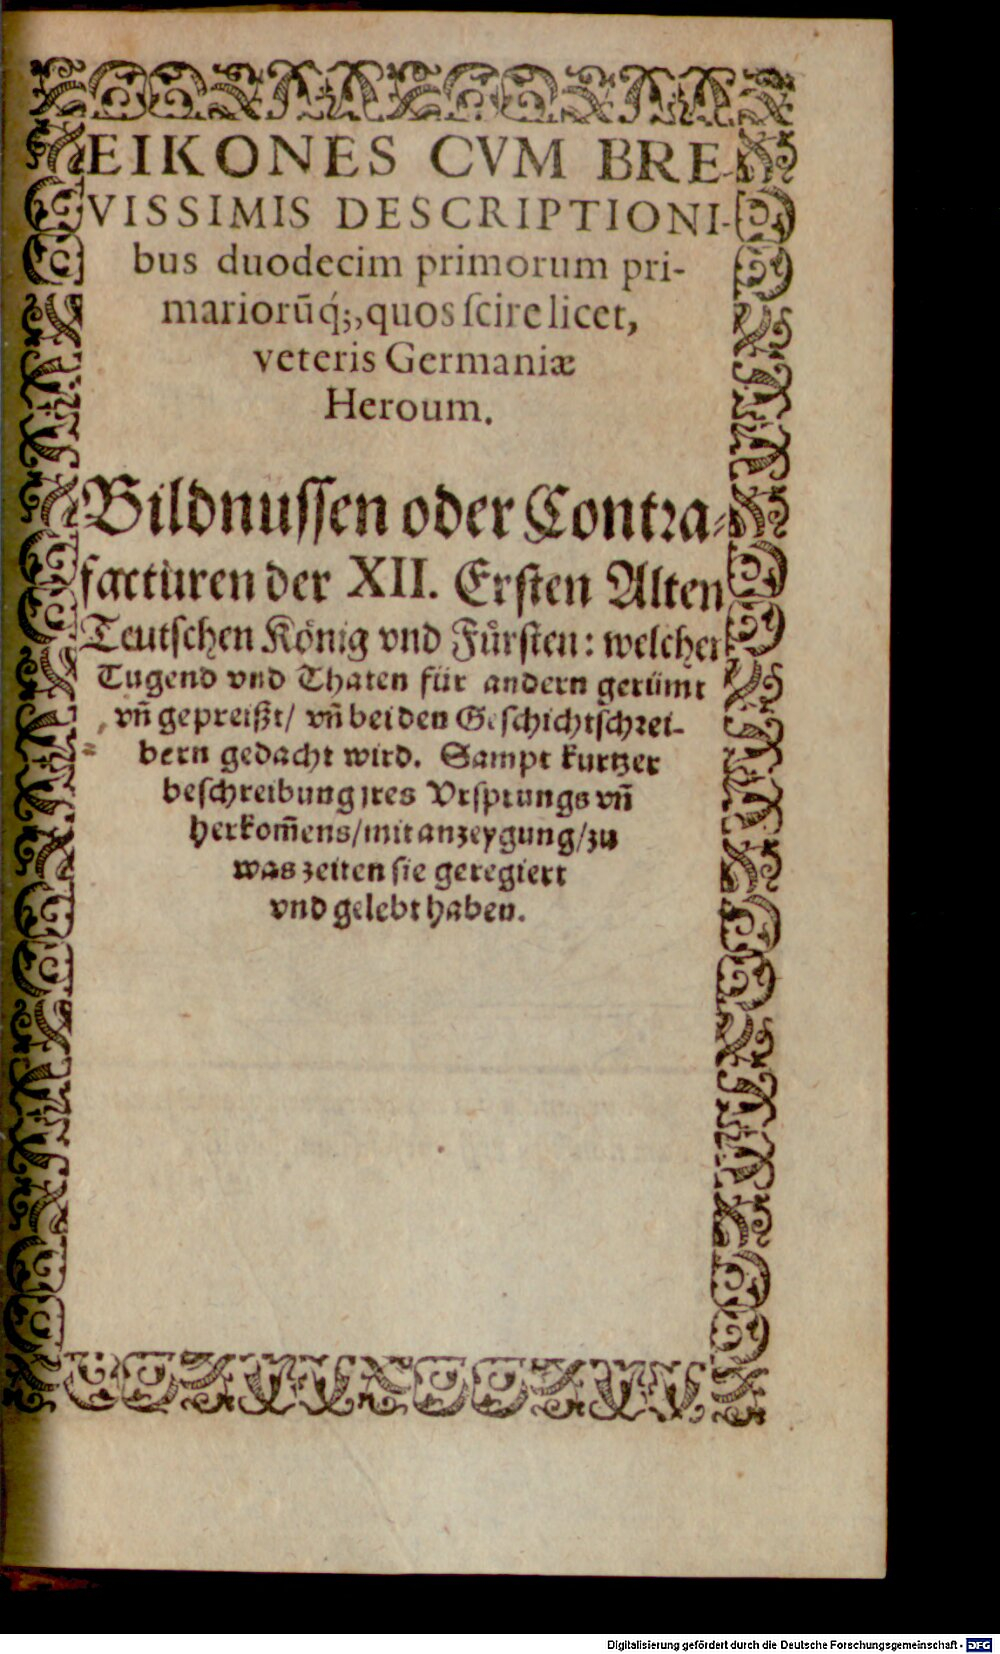 EIKONES CVM BRE-
VISSIMIS DESCRIPTIONI-
bus duodecim primorum pri-
mariorūq́;, quos ſcire licet,
veteris Germaniæ
Heroum.
Bildnuſſen oder Contra-
facturen der XII. Erſten Alten
Teutſchen König vnd Fürſten: welcher
Tugend vnd Thaten für andern gerümt
vn̄ gepreißt/ vn̄ bei den Geſchichtſchrei-
bern gedacht wird. Sampt kurtzer
beſchreibung jres Vrſprungs vn̄
herkom̄ens/ mit anzeygung/ zu
was zeiten ſie geregiert
vnd gelebt haben.
Digitalisierung gefördert durch die Deutsche Forschungsgemeinschaft - DFG